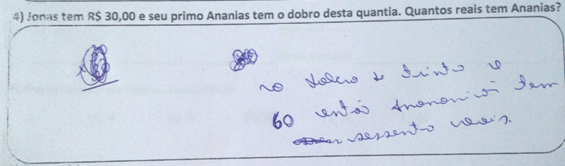 4) Jonas tem R$ 30,00 e seu primo Ananias tem o dobro desta quantia. Quantos reais tem Ananias?
no dobro de trinta é
60 então Ananonias tem
sessenta reais.